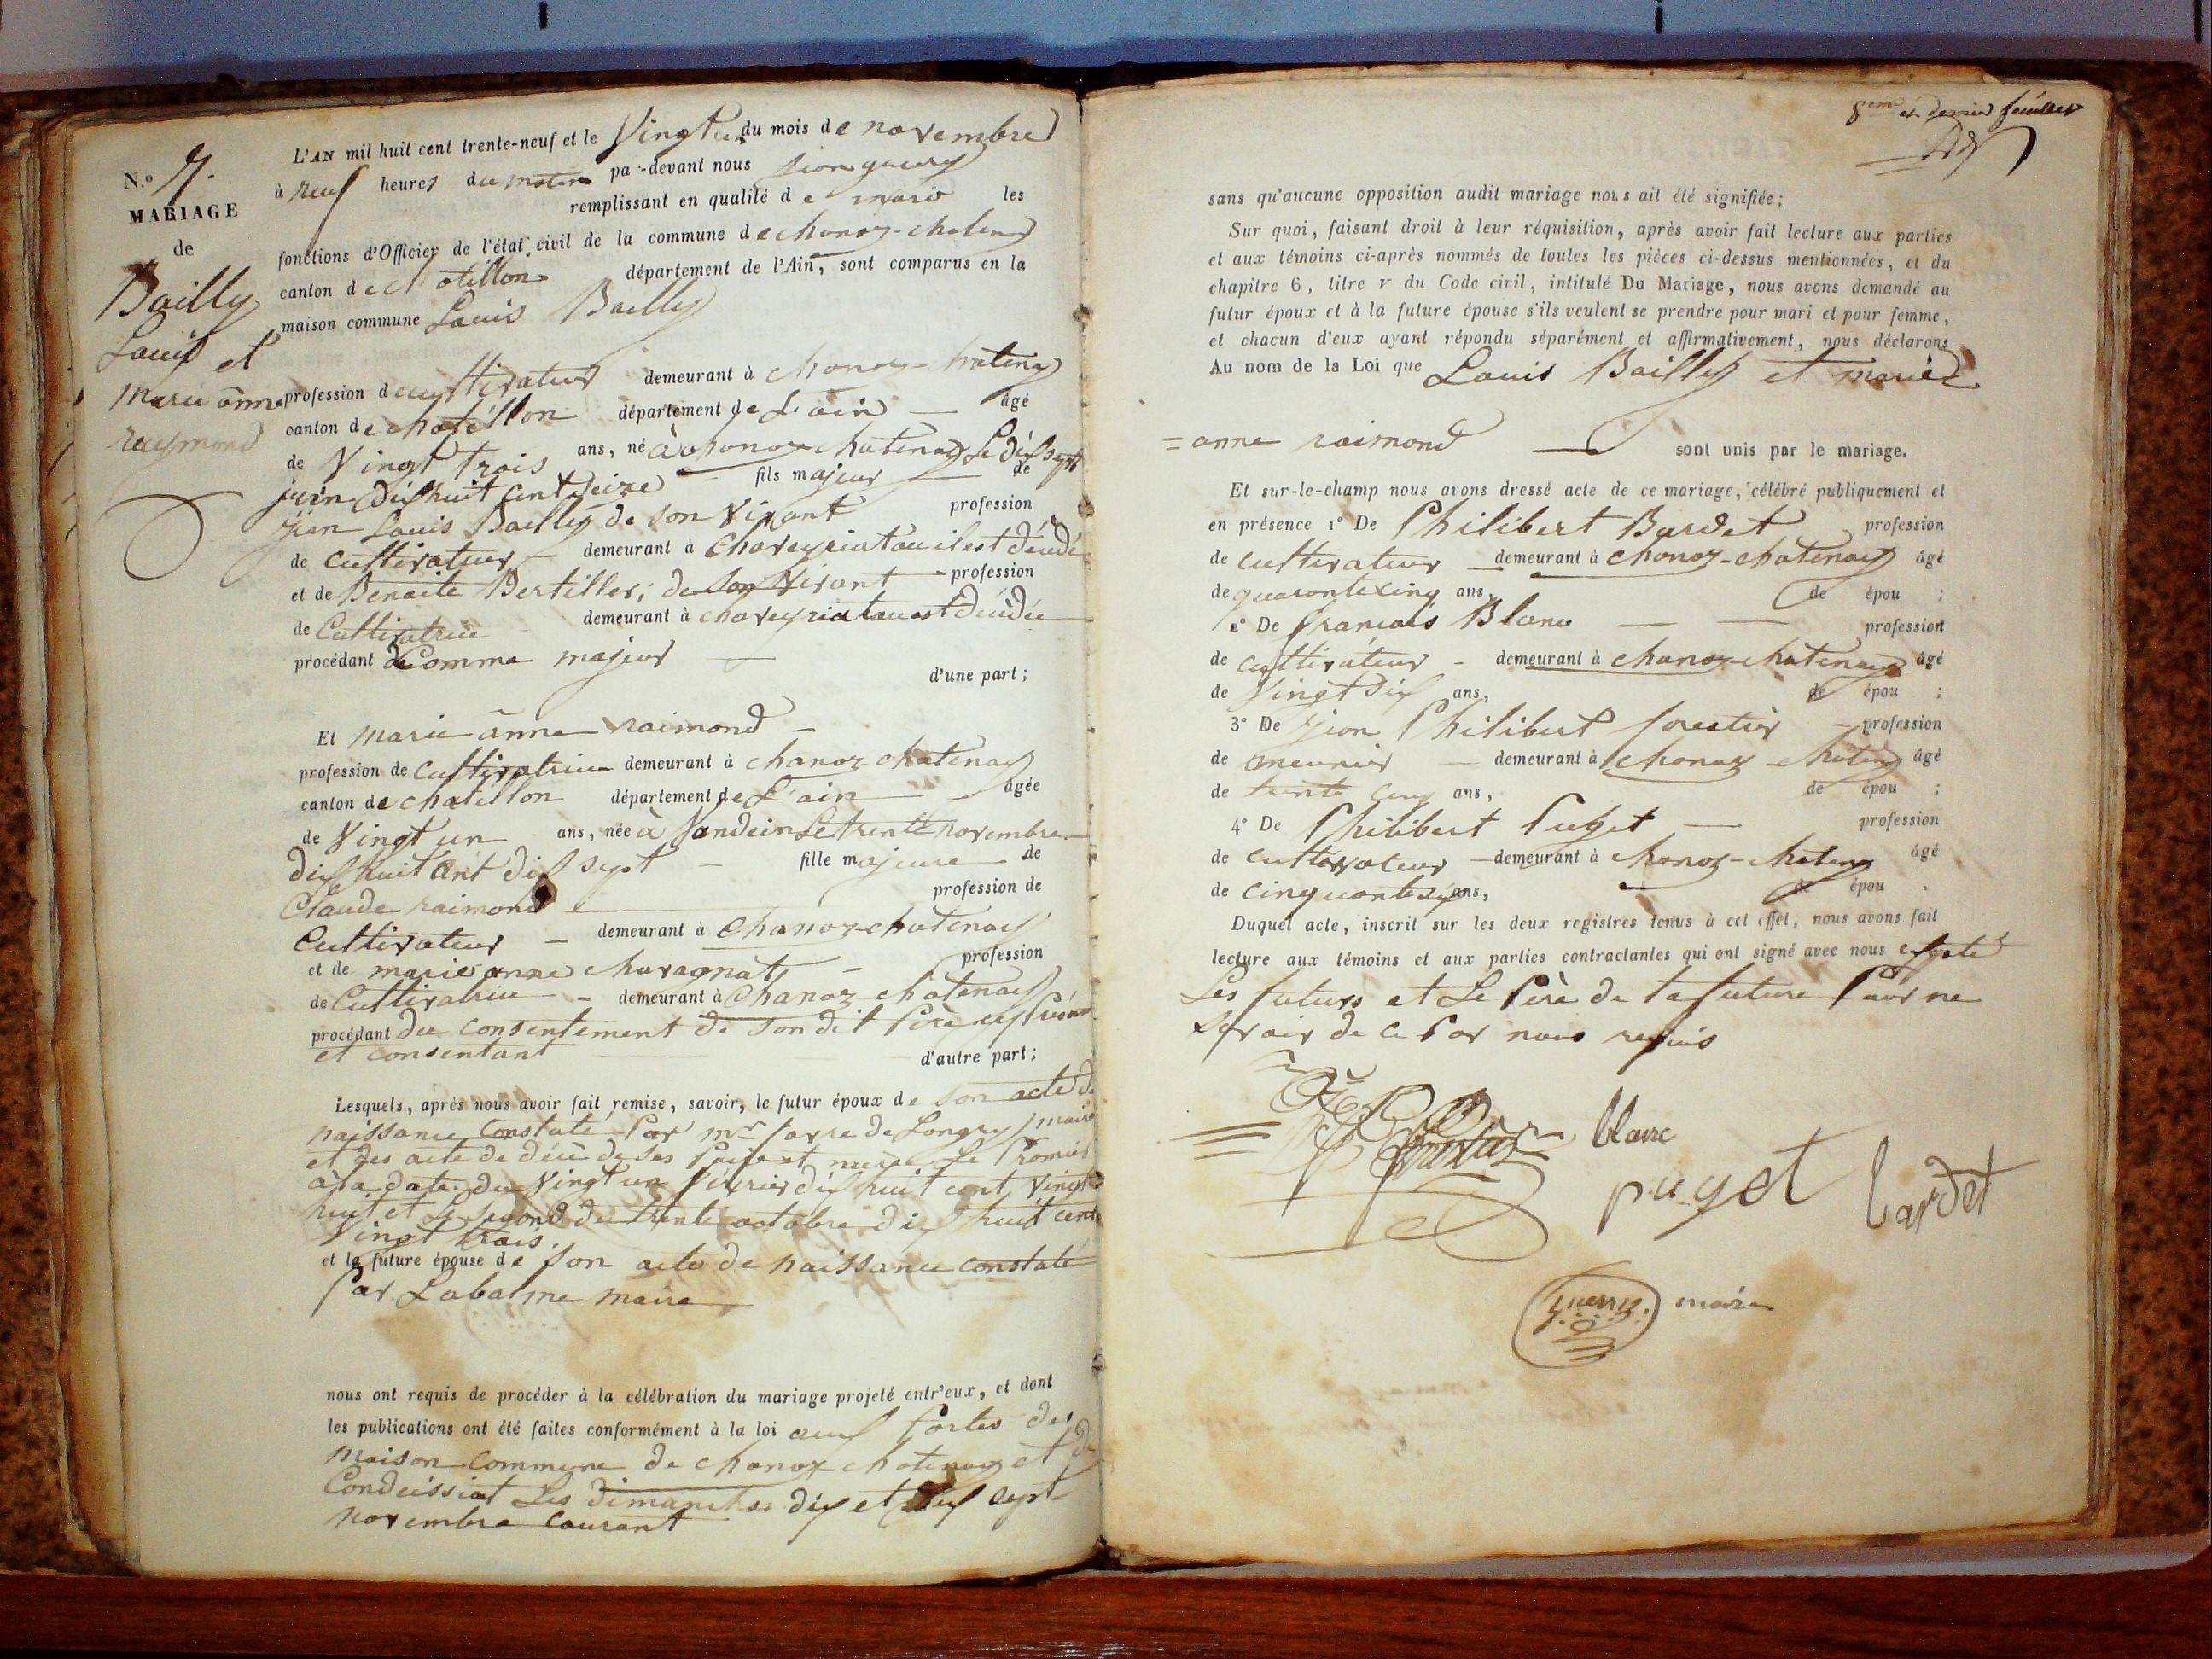 N.º 7.
MARIAGE
de
Bailly
Louis et
marie anne
raymond
L'AN mil huit cent trente-neuf et le Vingt un du mois de novembre
à neuf heures du matin par-devant nous
remplissant en qualité de maire les
fonctions d'Officier de l'état civil de la commune de chanoz-chatenay
canton de chatillon département de l'Ain, sont comparus en la
maison commune Louis Bailly
profession de cultivateur demeurant à chanoz-chatenay
canton de chatillon département de L'ain âgé
de Vingt trois ans, né à chanoz chatenay Le dix sept
juin dix huit cent seize fils majeur de
jean Louis Bailly de son Vivant profession
de cultivateur demeurant à chaveyriat ou il est décédé
et de Benoite Bertiller, de son Vivant profession
de Cultivatrice demeurant à chaveyriat ou est décédée
procédant Comme majeur
d'une part ;
Et marie anne raimond
profession de cultivatrice demeurant à chanoz chatenay
canton de chatillon département de L'ain âgée
de Vingt un ans, née à Vandeins Le trente novembre
dix huit cent dix sept fille majeure de
Claude raimond profession de
Cultivateur demeurant à chanoz-chatenay
et de marie anne chavagnat profession
de Cultivatrice demeurant à chanoz-chatenay
procédant du consentement de son dit Père cy Présent
et consentant d'autre part ;
Lesquels, après nous avoir fait remise, savoir, le futur époux de son acte de
naissance constaté Par mr farre de Longry maire
et des acte de décè de ses Père et mère Le Premier
à la date du Vingt un février dix huit cent Vingt
huit et Le second du trente octobre dix huit cent
Vingt trois.
et la future épouse de son acte de naissance constaté
Par Labalme maire
nous ont requis de procéder à la célébration du mariage projeté entr'eux, et dont
les publications ont été faites conformément à la loi aux Portes des
maison commune de chanoz-chatenay et de
Condeissiat Les dimanches dix et dix sept
novembre courant
8eme et dernier feuillet
sans qu'aucune opposition audit mariage nous ait été signifiée ;
Sur quoi, faisant droit à leur réquisition, après avoir fait lecture aux parties
et aux témoins ci-après nommés de toutes les pièces ci-dessus mentionnées, et du
chapitre 6, titre v du Code civil, intitulé Du Mariage, nous avons demandé au
futur époux et à la future épouse s'ils veulent se prendre pour mari et pour femme,
et chacun d'eux ayant répondu séparément et affirmativement, nous déclarons
Au nom de la Loi que Louis Bailly et marie
= anne raimond sont unis par le mariage.
Et sur-le-champ nous avons dressé acte de ce mariage, célébré publiquement et
en présence 1º De Philibert Bardet profession
de cultivateur demeurant à chanoz-chatenay âgé
de quarante cinq ans, de épou ;
2º De français Blanc profession
de cultivateur demeurant à chanoz-chatenay âgé
de Vingt dix ans, de épou ;
3º De jean Philibert forestier profession
de meunier demeurant à chanoz chatenay âgé
de trente cinq ans, de épou ;
4º De Philibert Puget profession
de cultivateur demeurant à chanoz-chatenay âgé
de cinquante six ans, de épou
Duquel acte, inscrit sur les deux registres tenus à cet effet, nous avons fait
lecture aux témoins et aux parties contractantes qui ont signé avec nous excepté
Les futurs et Le Père de La future Pour ne
savoir de ce Par nous requis
blanc
puget
bardet
guerry. maire